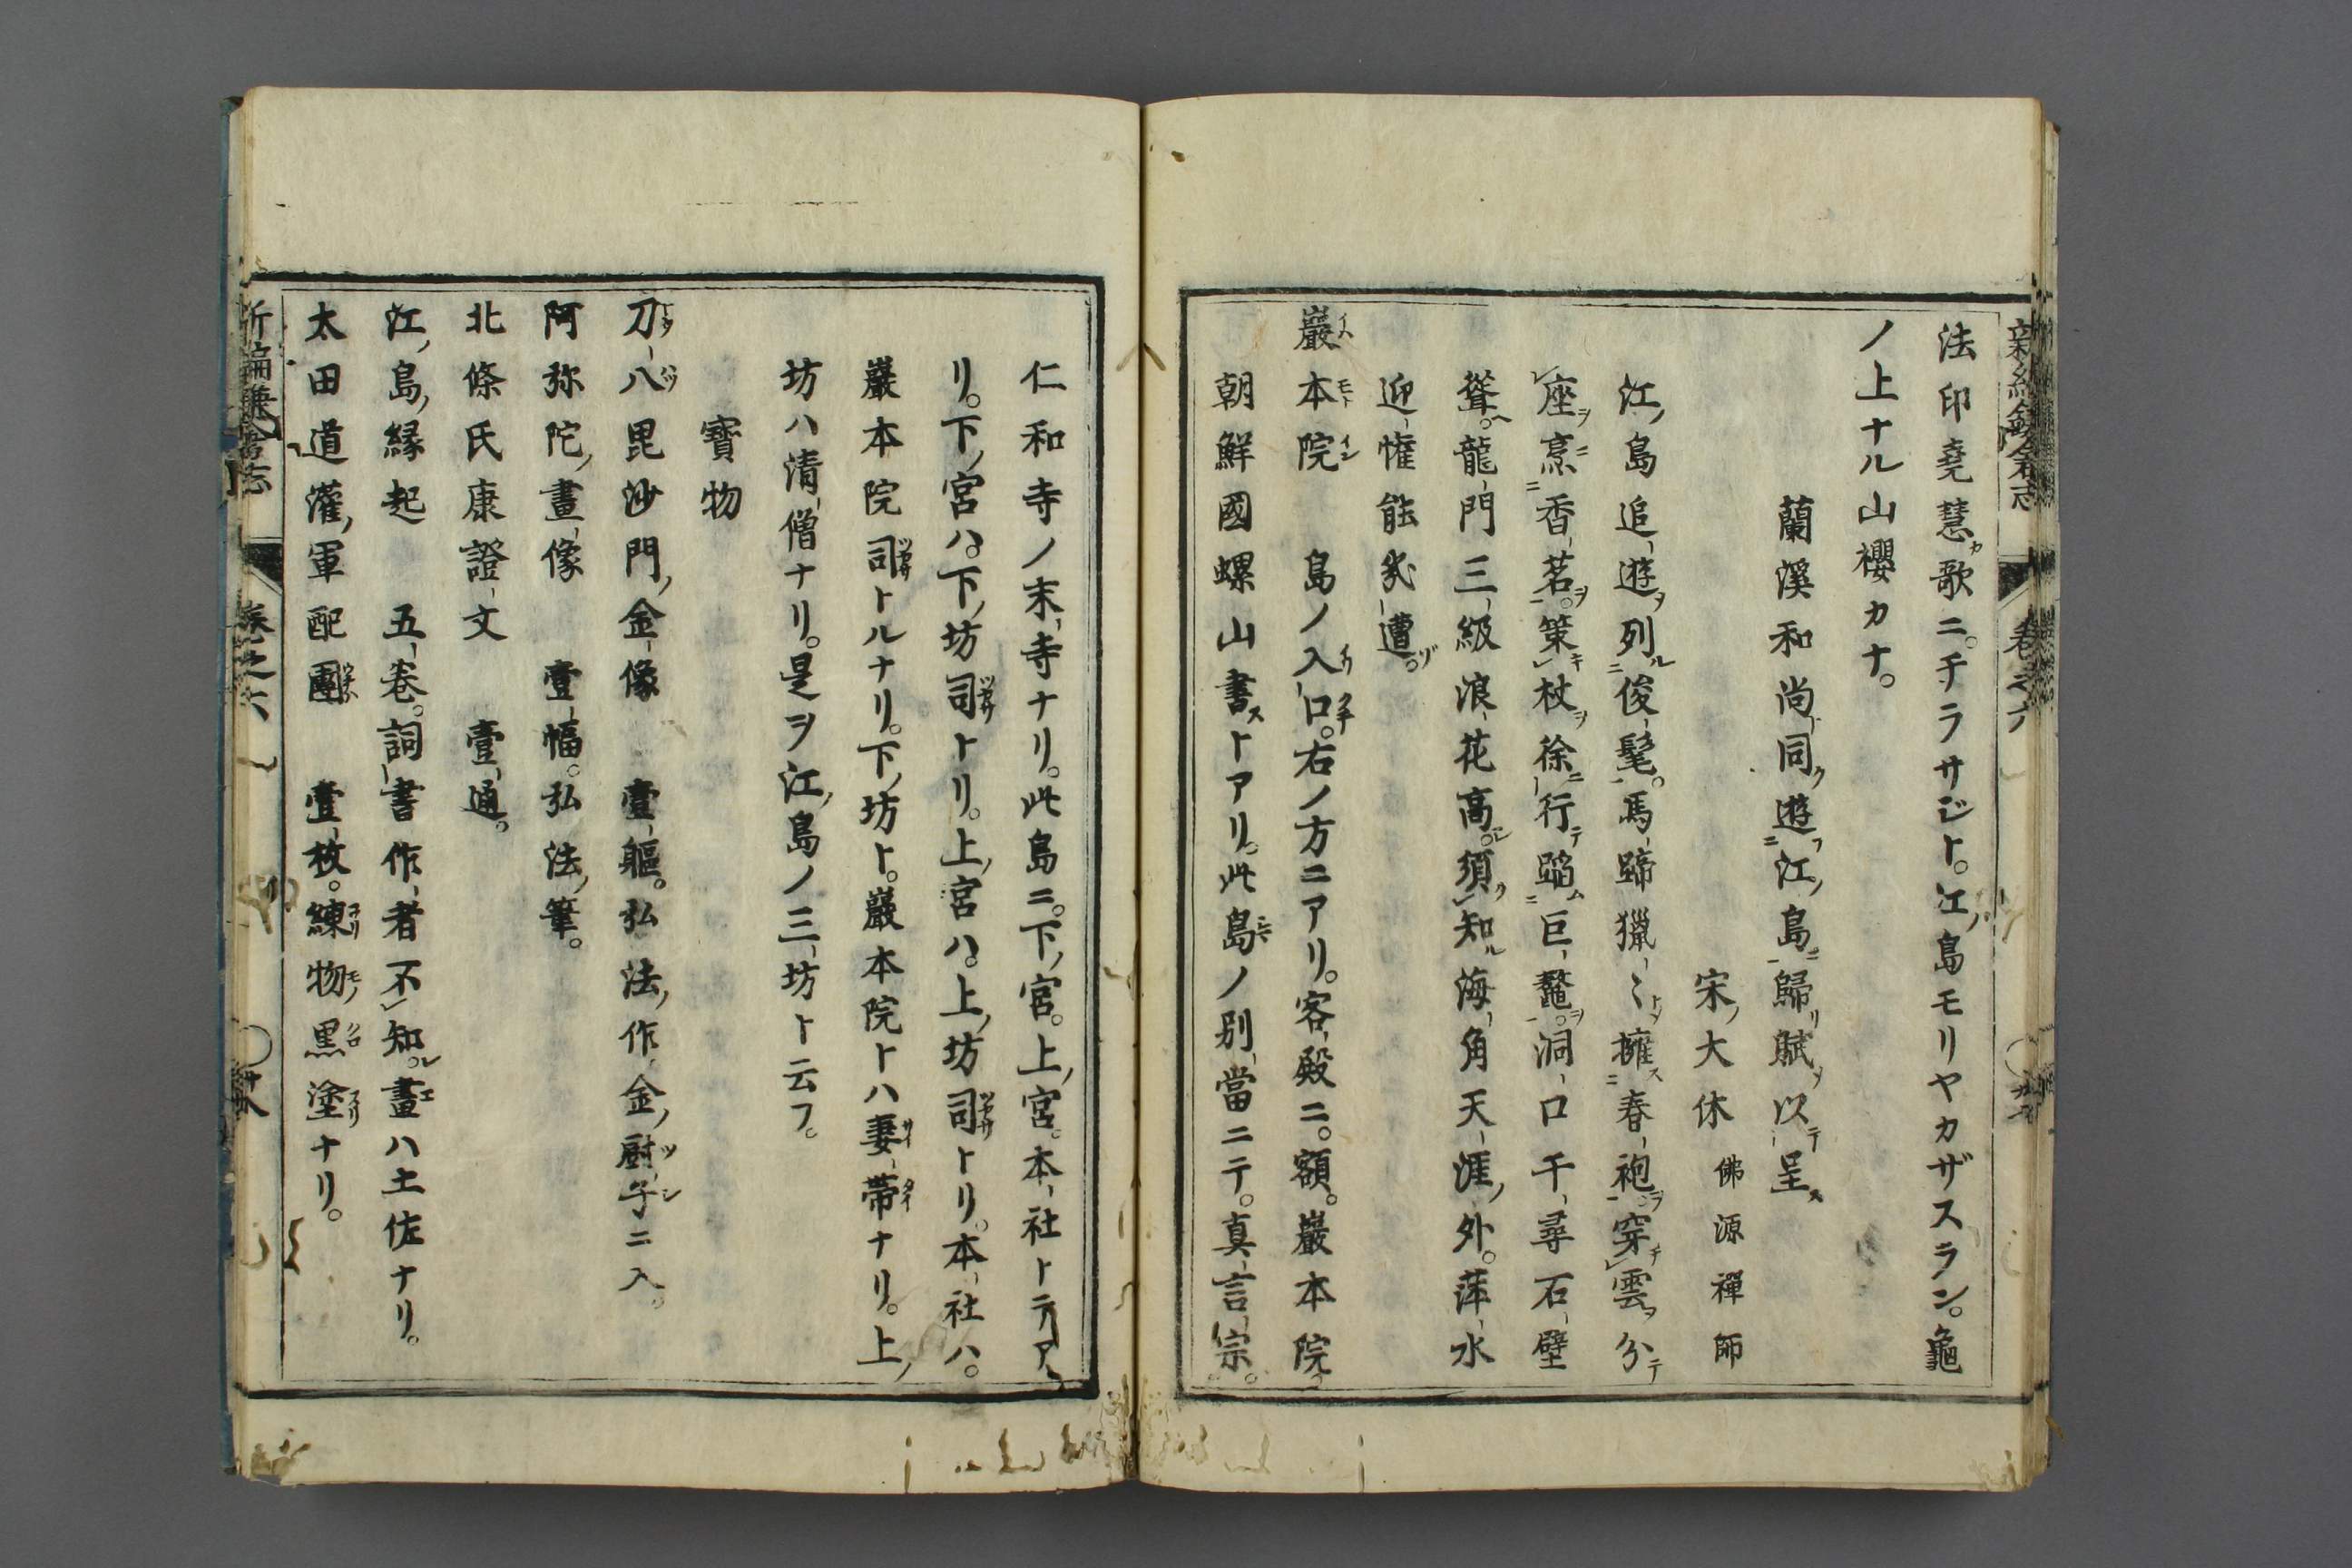 法印堯慧カ歌ニ。チラサジト。江ノ島モリヤカザスラン。龜
ノ上ナル山櫻カナ。
蘭溪和尚同ク遊フ二江ノ島ニ一歸リ賦ヲ以テ呈ス
宋ノ大休佛源禪師
江ノ島追遊ヲ列ル二俊髦一。馬蹄獵〻トメ擁ス二春袍ヲ一。穿チレ雲ヲ分テ
レ座ヲ烹ニ二香茗ヲ一。策キレ杖ヲ徐ニ行テ蹈ム二巨鼇ヲ一。洞口千尋石壁
聳ヘ。龍門三級浪花高シ。須クレ知ル海角天涯ノ外。萍水
迎懽能幾遭ゾ。
巖本院　島ノ入口。右ノ方ニアリ。客殿ニ。額。巖本院。
朝鮮國螺山書ストアリ。此島ノ別當ニテ。真言宗。
仁和寺ノ末寺ナリ。此島ニ。下ノ宮。上ノ宮。本社トテア
リ。下ノ宮ハ。下ノ坊司トリ。上ノ宮ハ。上ノ坊司トリ。本社ハ。
巖本院司トルナリ。下ノ坊ト。巖本院トハ妻帶ナリ。上ノ
坊ハ清僧ナリ。是ヲ江ノ島ノ三坊ト云フ。
寶物
刀八毘沙門ノ金像　壹軀。弘法ノ作。金ノ厨子ニ入。
阿弥陀ノ畫像　壹幅。弘法ノ筆。
北條氏康證文　壹通。
江ノ島ノ縁起　五卷。詞書作者不レ知レ。畫ハ土佐ナリ。
太田道灌ノ軍配團　壹枚。練物黒塗ナリ。